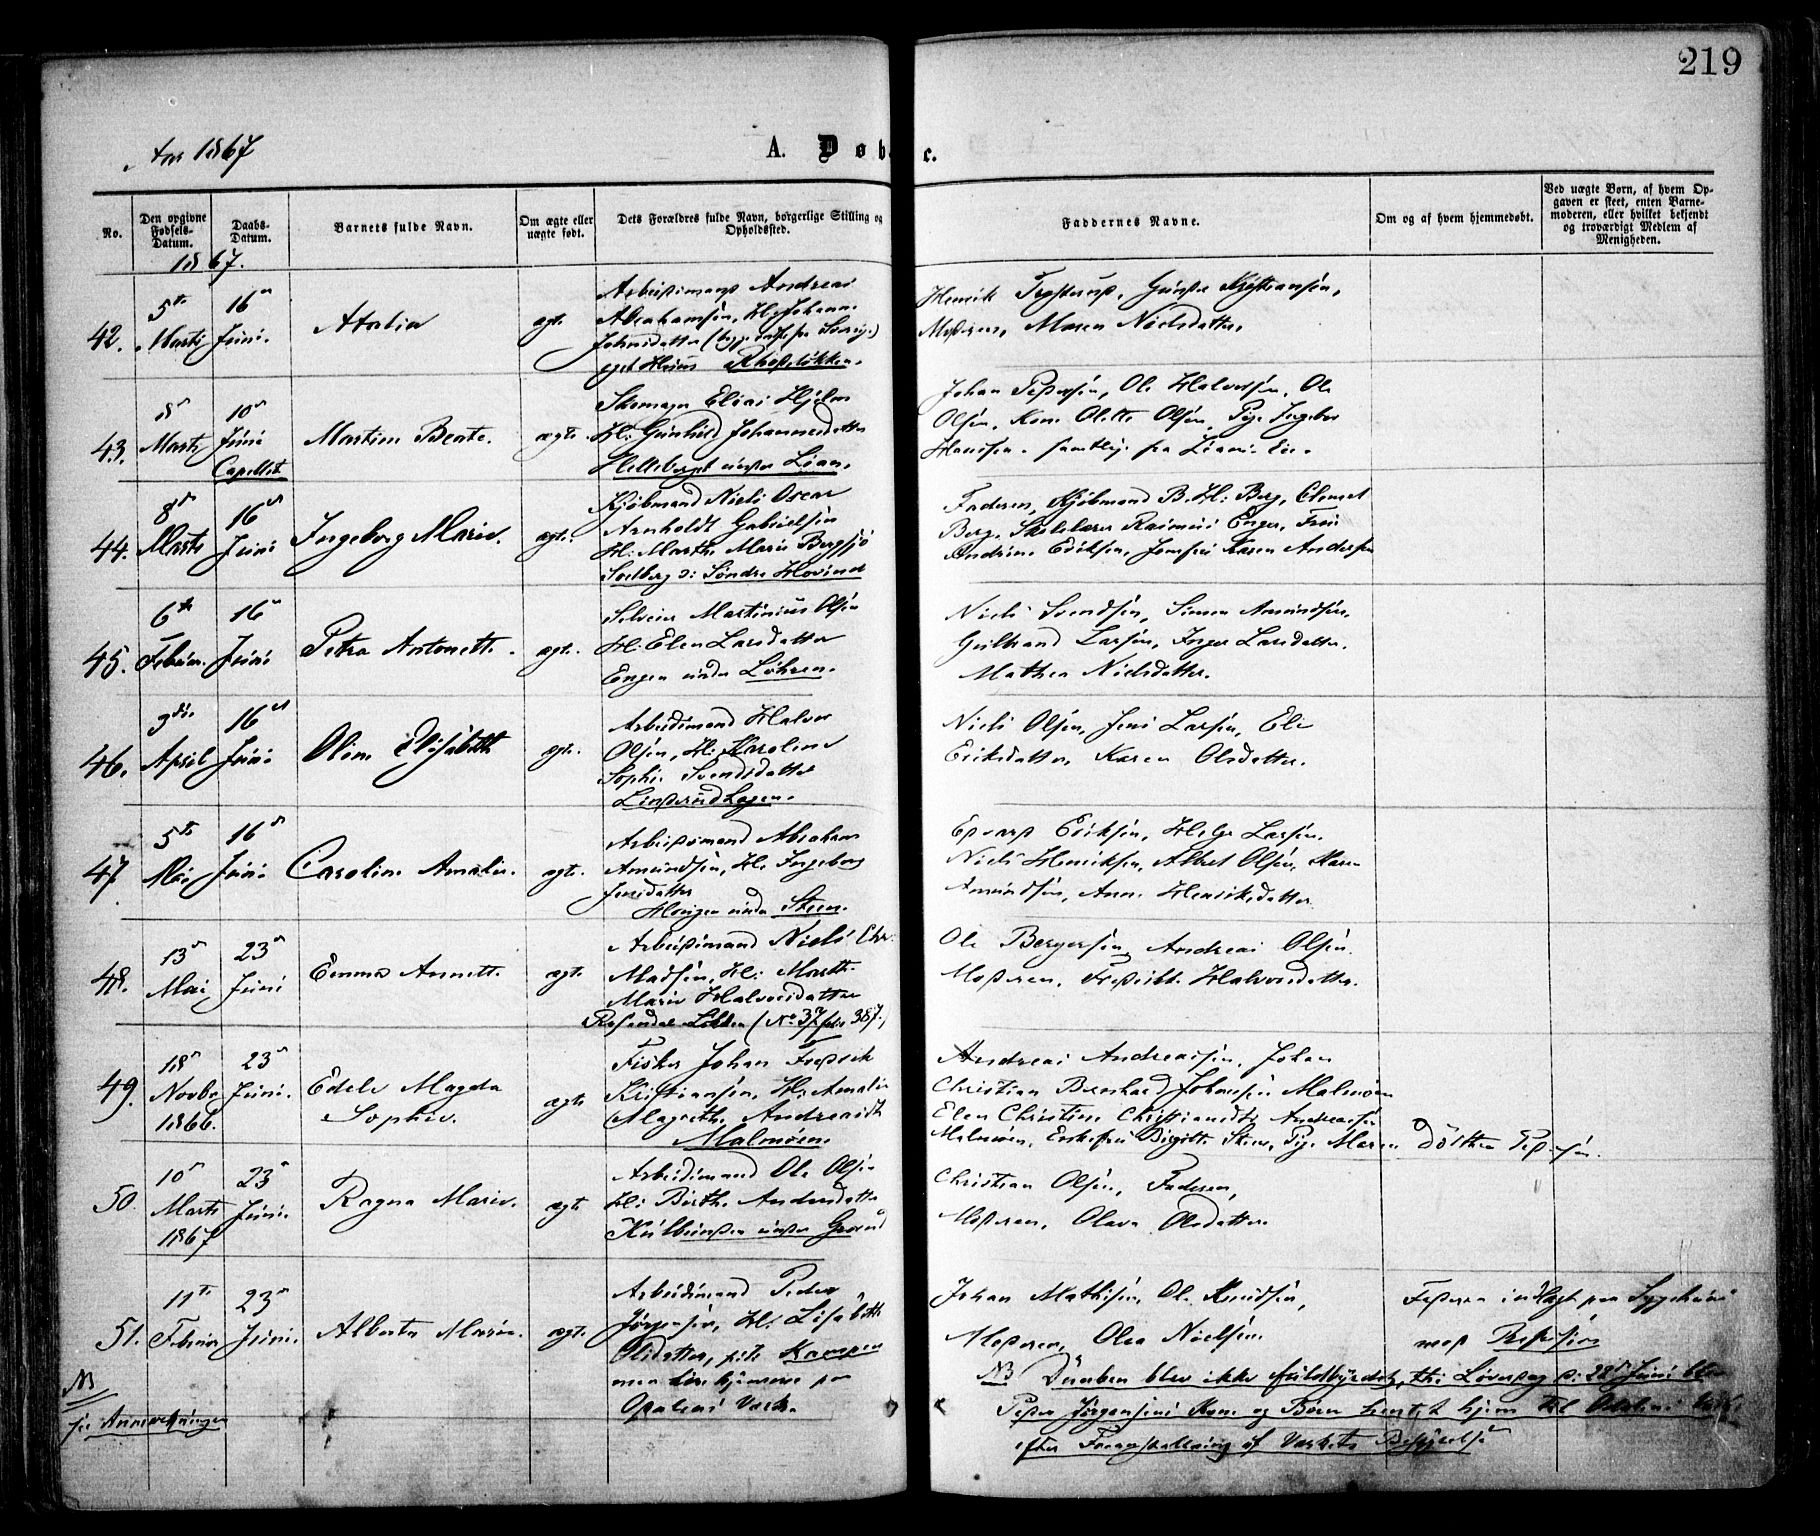 219
Aar 1867
A. Døbte.
No.
Den opgivne Fødsels-Datum.
Daabs-Datum.
Barnets fulde Navn.
Om ægte eller uægte født.
Dets Forældres fulde Navn, borgerlige Stilling og Opholdssted.
Faddernes Navne.
Om og af hvem hjemmedøbt.
Ved uægte Børn, af hvem Opgaven er skeet, enten Barnemoderen, eller hvilket bekjendt og troværdigt Medlem af Menigheden.
1867.
42. 5te Marts 16de Juni Atalia ægte
Arbeidsmand Andreas
Abrahamsen, H: Johanne
Johnsdatter
eget Huus
Henrik
Moderen, Maren Nielsdatter.
43. 18de Marts 10de Juni Capellet Martine Beate. ægte.
Skomager Elias Hjelm
H: Gunhild Johannesdatter
Helleberget under Lian.
Johan Pedersen, Ole Halvorsen, Ole
Olsen, Kone Olette Olsen, Pige Ingebor
Hansen. samtlige fra Lians Eie.
44. 8de Marts 16de Juni Ingeborg Marie. ægte.
Kjøbmand Niels Oscar
Arnholdt Gabrielsen
H: Marthe Marie Bergsjø
Solberg o: Søndre Hovind
Faderen, Kjøbmand B. H: Berg, Clemet
Berg, Skolelærer Rasmus Enger, Fru
Andrine Eriksen, Jomfru Karen Andersen
45. 6te Februar 16de Juni Petra Antonette. ægte.
Selveier Martinius Olsen
H: Elen Larsdatter
Engen under Løhren.
Niels Svendsen, Simen Amundsen,
Gulbrand Larsen, Inger Larsdatter.
Mathea Nielsdatter.
46. 3die April 16de Juni Oline Elisabeth ægte.
Arbeidsmand Halvor
Olsen, H: Karoline
Sophie Svendsdatter
Linderudhagen.
Niels Olsen, Jens Larsen, Eli
Eriksdatter, Karen Olsdatter.
47. 5te Mai 16de Juni Caroline Amalie. ægte.
Arbeidsmand Abraham
Amundsen, H: Ingeborg
Jensdatter
under Steen.
Edvard Eriksen, Helge Larsen.
Niels Henriksen, Albret Olsen, Karen
Amundsen, Anne Henriksdatter
48. 13de Mai 23de Juni Emma Annette. ægte.
Arbeidsmand Niels Chr.
Madsen, H: Marthe
Marie Halvorsdatter
Rosendal Løkken (No 37 folio 387.)
Ole Bergersen, Andreas Olsen.
Moderen, Fredrikke Halvorsdatter.
49. 18de Novbr 1866. 23de Juni. Edele Magda Sophie. ægte
Fisker Johan Fredrik
Kristiansen, H: Amalie
Magrethe Andreasdt
Malmøen.
Andreas Andreassen, Johan
Christian Bernhard Johnsen Malmøen
Elen Christine Christiansdtr Andreassen
Malmøen, Enkefru Birgitte Steen, Pige Maren Dorthea Pedersen.
50. 10de Marts 1867 23de Juni. Ragna Marie. ægte
Arbeidsmand Ole Olsen
H: Birthe Andersdatter
under Grorud
Christian Olsen, Faderen,
Moderen, Olava Olsdatter.
51. 11te Februar 23de Juni. Alberta Marie. ægte.
Arbeidsmand Peder
Jørgensen, H: Lisabeth
Olsdatter, sidst Kampen
men hjemme paa
Opalens Værk.
Johan Mathisen, Ole Knudsen,
Moderen, Olea Nielsen.
Faderen indlagt paa Sygehuus
med
NB
see Anmærkningen
NB Daaben blev ikke fuldbyrdet, thi Løverdag d: 22de Juni blev
Peder Jørgensens Kone og Børn hentet hjem til Opalens Værk
efter Foranstaltning af Værkets Bestyrelse